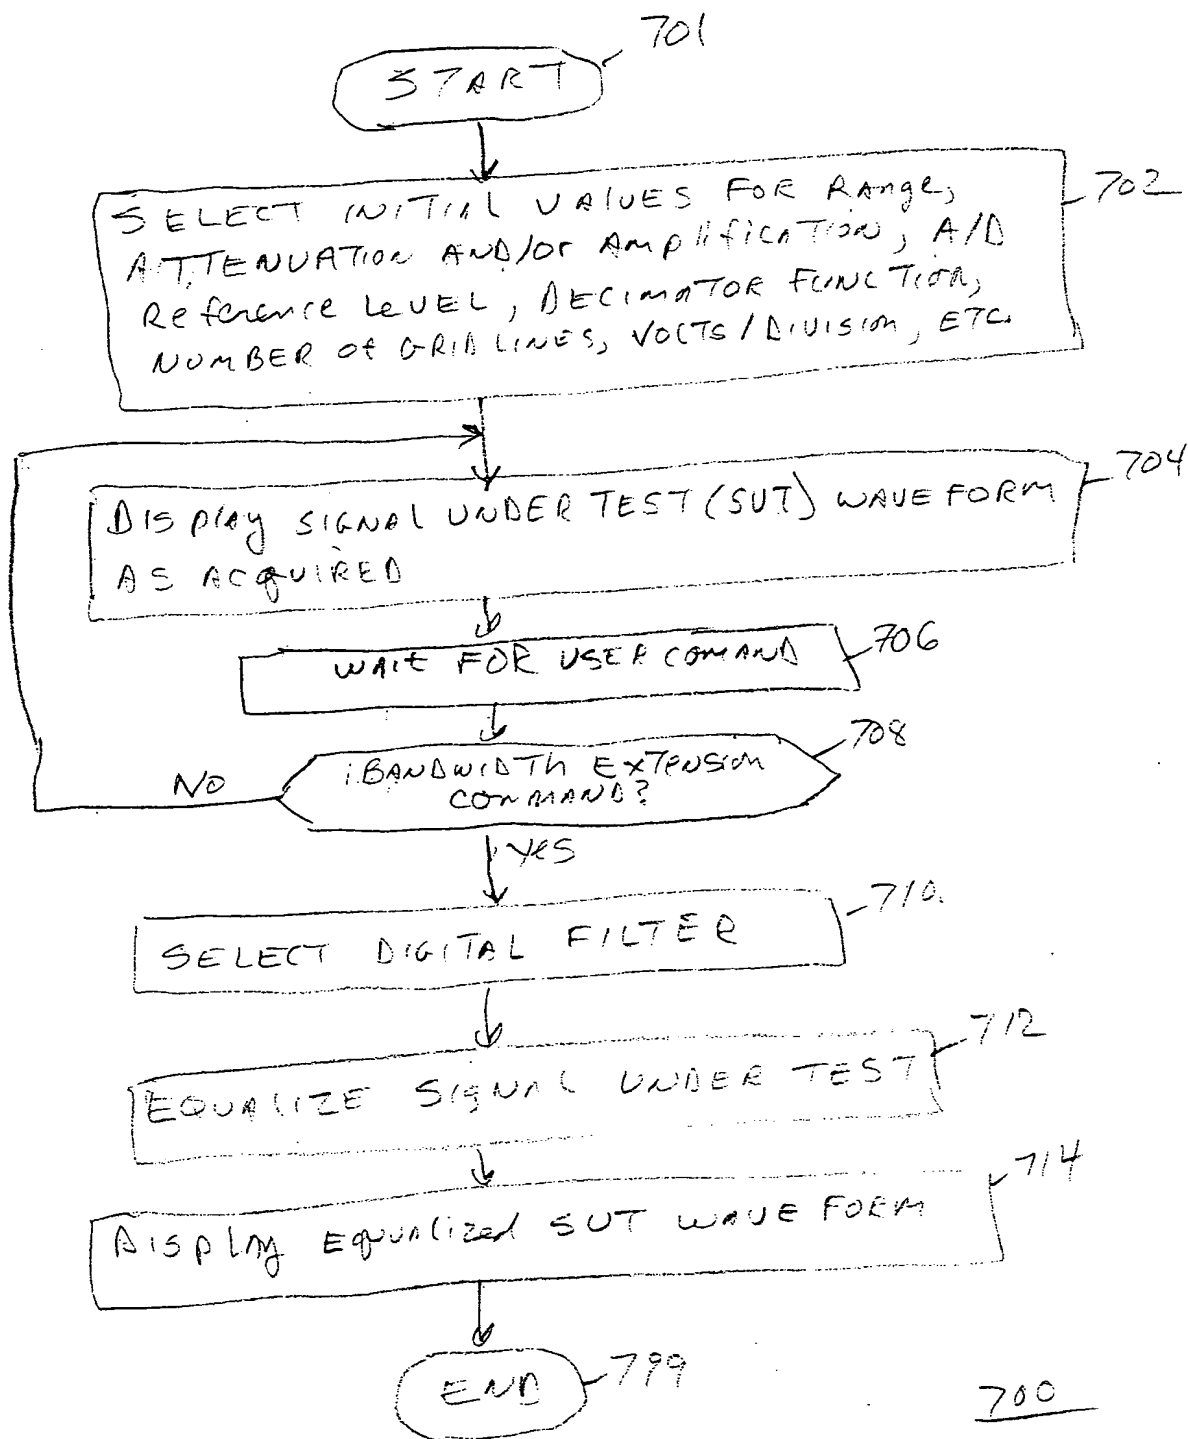 701
START
702
SELECT INITIAL VALUES FOR Range,
ATTENUATION AND/or Amplification, A/D
Reference LEVEL, DECIMATOR FUNCTION,
NUMBER of GRID LINES, VOLTS/DIVISION, ETC.
704
DISPlAy SIGNAL UNDER TEST (SUT) WAVEFORM
AS ACQUIRED
706
WAIT FOR USER COMAND
708
BANDWIDTH EXTENSION
COMMAND?
NO
yes
710
SELECT DIGITAL FILTER
712
EQUALIZE SIGNAL UNDER TEST
714
DISplAy EqualizeD SUT WAVE FORM
END
799
700